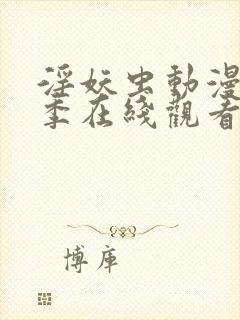 淫妖虫動漫
季在綫觀看
博庫